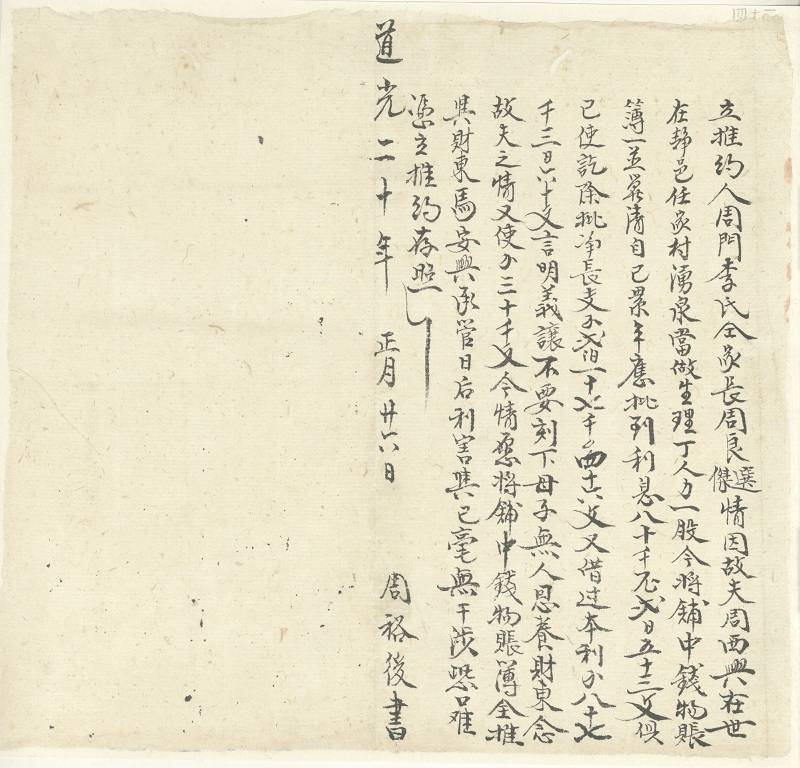 立推约人周門李氏仝家長周良選傑情因故夫周西興在世
在静邑任家村湧泉當做生理丁人力一股今将舖中錢物賬
簿一並筭清自已累年應批到利息八十千〇弍日五十三文俱
已使訖除批净長支錢弍伯一十七千四十六文又借过本利錢八十七
千三日六十文言明義讓不要刻下母子無人恩養財東念
故夫之情又使錢三十千文今情愿将舖中錢物賬薄全推
與財東馬安興承管日后利害與已毫無干涉恐口难
憑立推约存照
道光二十年 正月廿六日 周裕後書